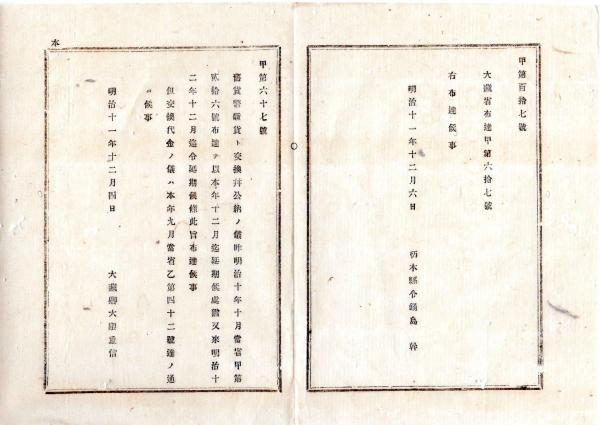 甲第百拾七號
大藏省布達甲第六拾七號
右布達候事
明治十一年十二月六日
栃木縣令鍋島 幹
甲第六十七號
舊貨幣紙貨ト交換幷公納ノ儀昨明治十年十月當省甲第
貳拾六號布達ヲ以本年十二月迄延期候處猶又來明治十
二年十二月迄令延期候條此旨布達候事
但交換代金ノ儀ハ本年九月當省乙第四十二號達ノ通
候事
明治十一年十二月四日
大藏卿大隈重信
本